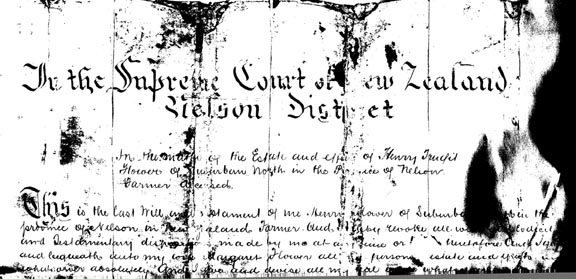 In the Supreme Court of New Zealand
Nelson District
In the matter of the Estate and effects of Henry
Flower of Suburban North in the Province of Nelson
Farmer deceased.
This is the last Will and Testament of me Henry Flower of Suburban North in the
province of Nelson in New Zealand Farmer. And I hereby revoke all
and Testamentary dispositions made by me at any time or heretofore And I give
and bequeath unto my love Margaret Flower all personal estate and effects
absolutely And I give and devise all my real